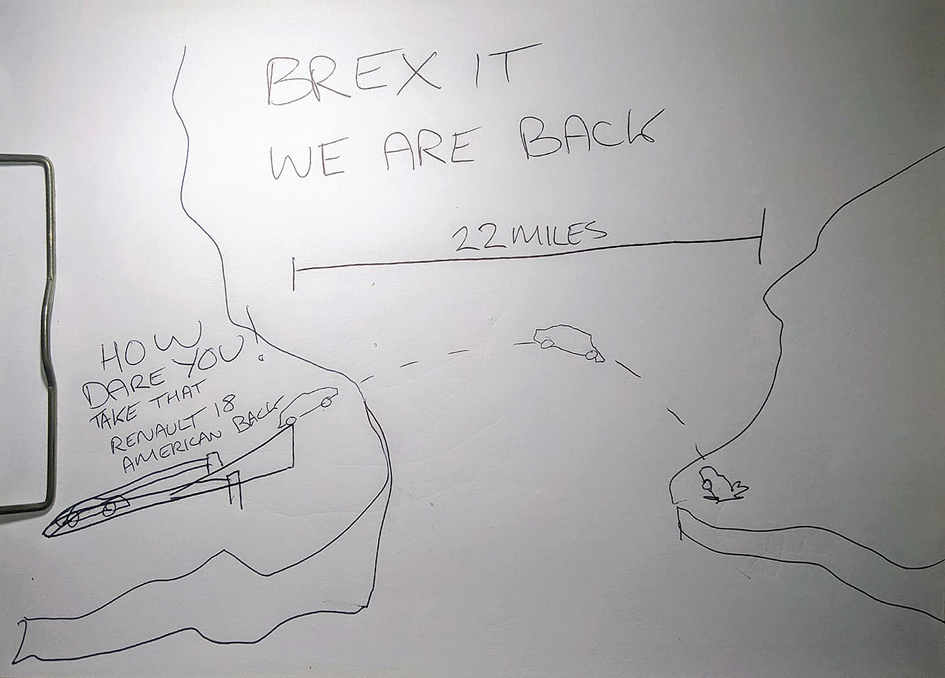 BREXIT
WE ARE BACK
22 MILES
HOW
DARE YOU!
TAKE THAT
RENAULT 18
AMERICAN BACK